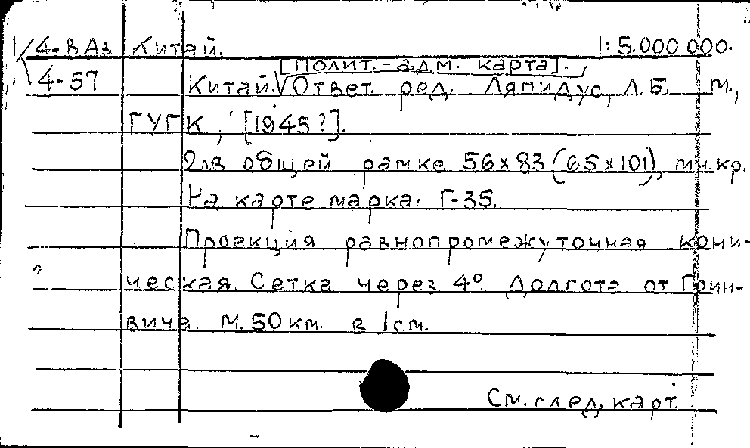 4-вАз Китай. 1:5.000 000.
[Полит.-адм. карта].
4-57 Китай. Ответ. ред. Ляпидус, Л.Б. М.,
ГУГК, [1945?].
2лв общей рамке 56х83 (65х101), мн.кр.
На карте марка: Г-35.
Проекция равнопромежуточная кони-
ческая. Сетка через 4° Долгота от Грин-
вича. М. 50 км. в 1 см.
См. след. карт.